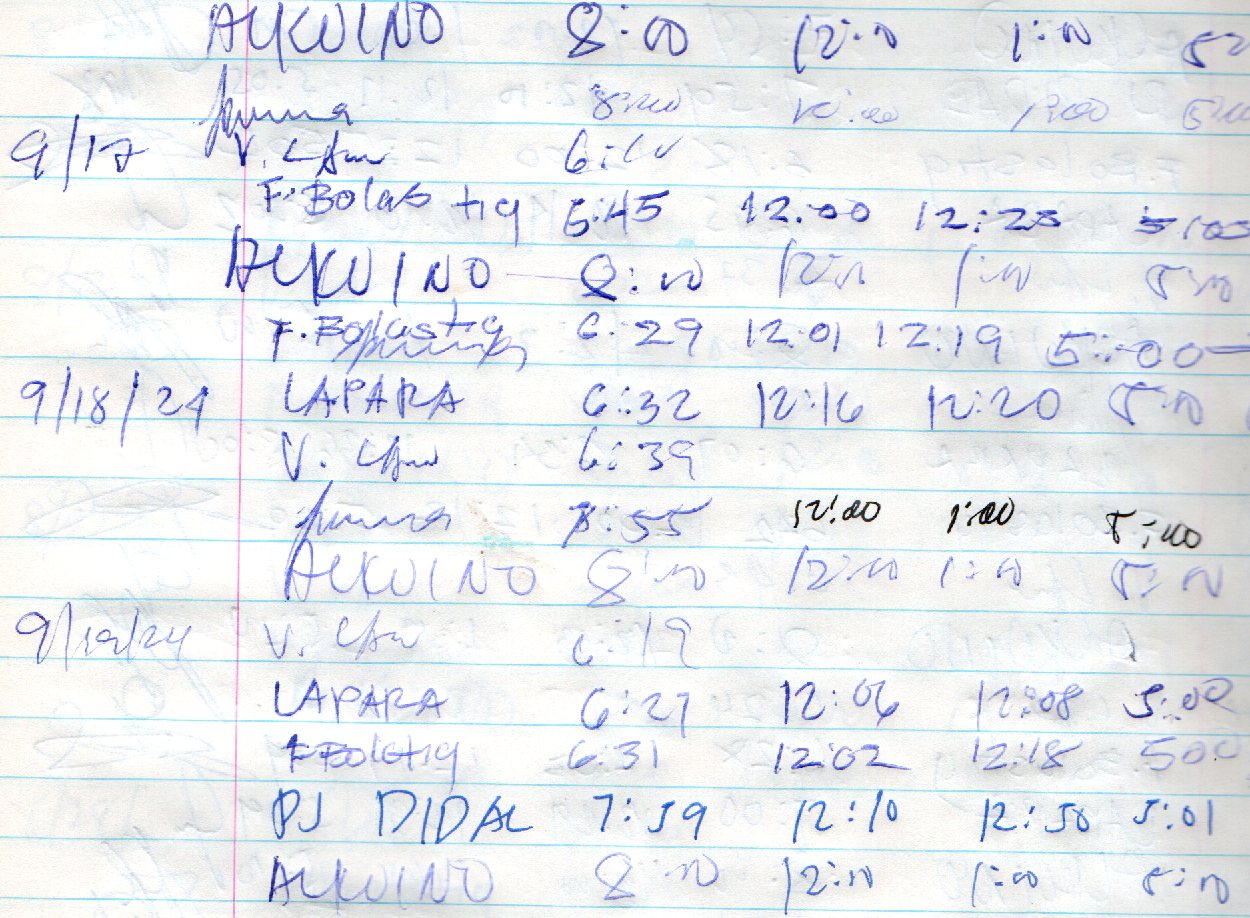 ALKUINO 8:00 12:00 1:00
8:00 12:00 1:00
9/17 V.
F. Bolastig 6:45 12:00 12:25
ALKUINO 8:00 12:00 1:00 5:00
F. Bolastig 6:29 12:01 12:19 5:00
9/18/24 LAPARA 6:32 12:16 12:20 5:00
V. 6:39
7:55 12:00 1:00 5:00
ALKUINO 8:00 12:00 1:00 5:00
9/19/24 V. 6:19
LAPARA 6:27 12:06 12:08 5:00
6:31 12:02 12:18 500
PJ DIDAL 7:59 12:10 12:50 5:01
ALKUINO 8:00 12:00 1:00 5:00